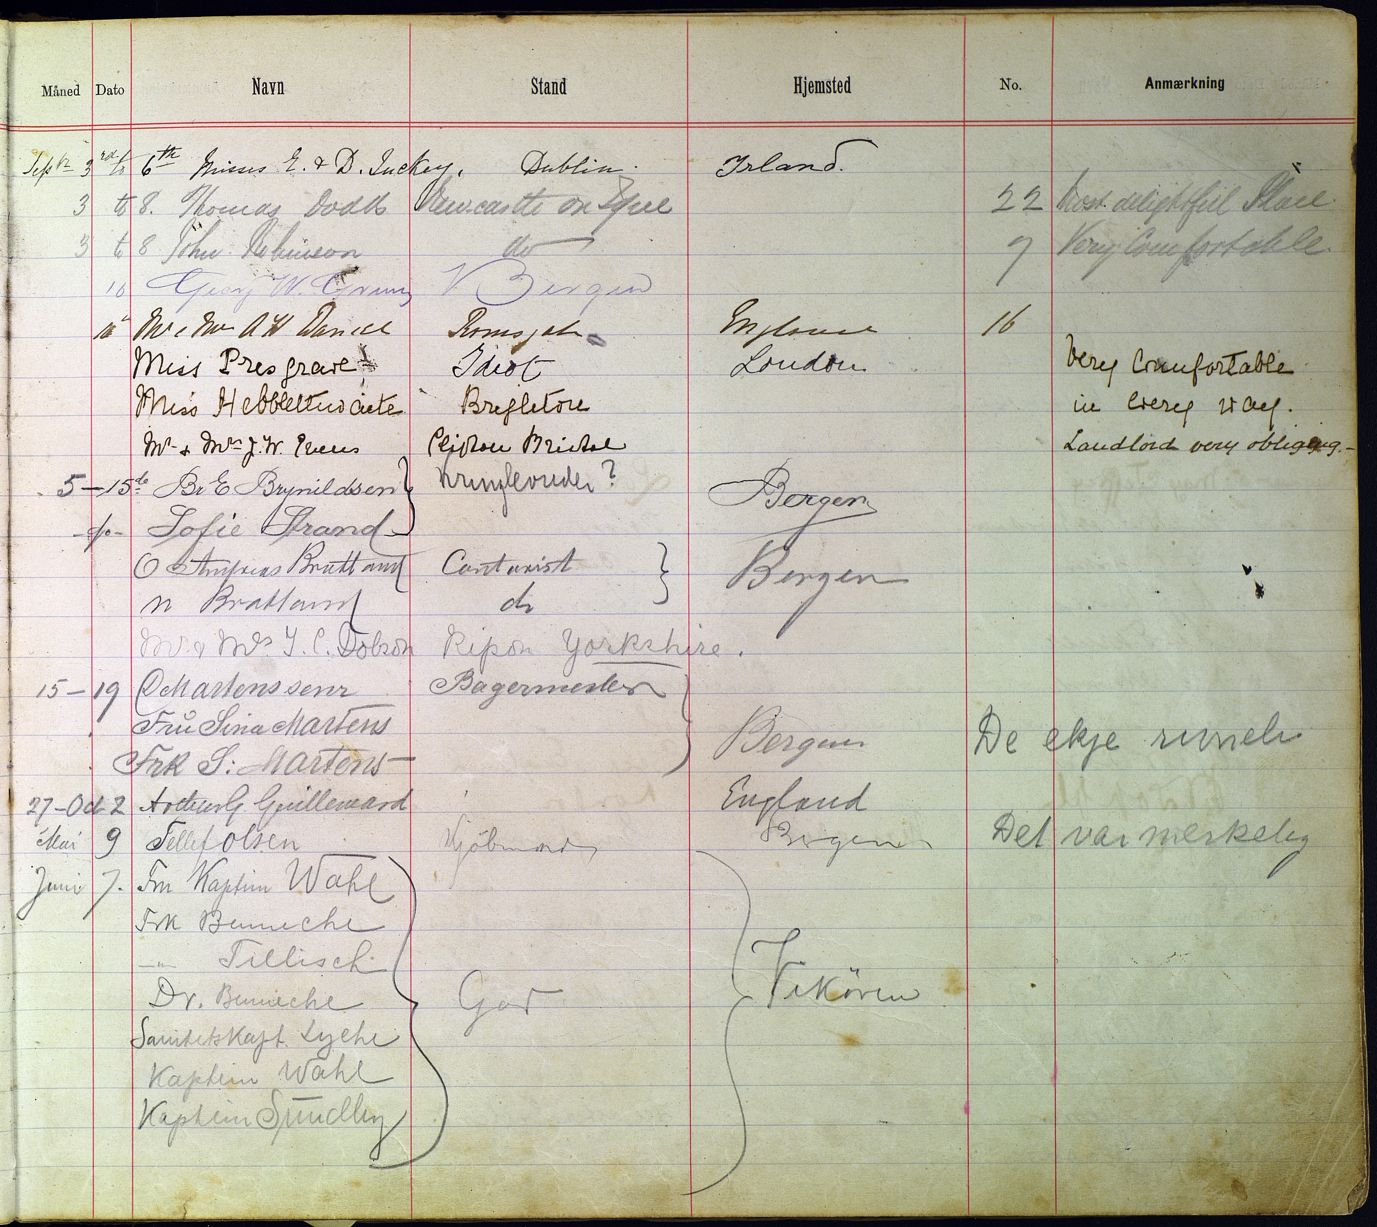 Måned Dato Navn Stand Hjemsted No. Anmærkning
Septbr 3rd to 6th Misses E. & D. Tuckey. Dublin. Irland.
3 to 8. Thomas Dodds Newcastle on Tyne 22 Most delightful Place
3 to 8 John Robinson do 7 Very Comfortable
10 Georg W. Bergen
10 Mr & Mrs A H Daniel Ramsgate England 16
Miss Presgrave Idiot London Very Comfortable
Miss Hebblethwaite in every way.
Mr & Mrs J. W. Evens Clifton Bristol Landlord very obliging.
5 - 15de Br E Brynildsen Kringlevrider? Bergen
- do - Sofie Strand
O Andreas Brattland Contorist Bergen
N Brattland do
Mr & Mrs T. C. Dobson Ripon Yorkshire.
15 - 19 O Martens senr Bagermester
Fru Sina Martens Bergen De ekje
Frk S: Martens
27 - Oct 2 Arthur G Guillemard England
Mai 9 Tellef Olsen Kjöbmand Bergen Det var merkelig
Juni 7. Fru Kaptein Wahl
Frk Benneche
-"- Tillisch
Dr. Benneche Gad Vikören
Sanitetskapt. Lyche
Kaptein Wahl
Kaptein